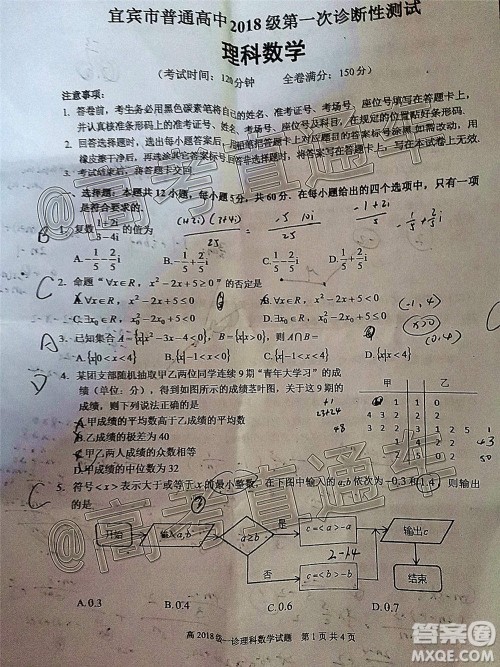 宜宾市普通高中2018级第一次诊断性测试
理科数学
(考试时间: 120分钟 全卷满分: 150分)
注意事项:
1. 答卷前，考生务必用黑色碳素笔将自己的姓名、准考证号、考场号、座位号填写在答题卡上，
并认真核准条形码上的准考证号、姓名、考场号、座位号及科目，在规定的位置贴好条形码.
2. 回答选择题时，选出每小题答案后，用2B铅笔把答题卡上对应题目的答案标号涂黑.如需改动，用
橡皮擦干净后，再选涂其它答案标号.回答非选择题时，将答案写在答题卡上，写在本试卷上无效.
3. 考试结束后，将答题卡交回.
一、选择题：本题共12小题，每小题5分，共60分．在每小题给出的四个选项中，只有一项
是符合要求的.
B 1. 复数(1+2i)/(3-4i)的值为
(1+2i)(3+4i)/25
-5 10i/25
-1+2i/5
-1/5+2/5i
A. 1/5-2/5i B. -1/5+2/5i C. -1/5-2/5i D. 1/5+2/5i
C 2. 命题“∀x∈R，x²-2x+5≥0”的否定是
A. ∀x∈R，x²-2x+5≤0 B. ∀x∈R，x²-2x+5<0
C. ∃x₀∈R，x²-2x+5<0 D. ∃x₀∈R，x²-2x+5≤0
(-1,4)
x>0
(0,4)
A 3. 已知集合A={x|x²-3x-4<0}，B={x|x>0}，则A∩B=
A. {x|0<x<4} B. {x|x<4} C. {x|x>0} D. {x|x>4}
D 4. 某团支部随机抽取甲乙两位同学连续9期“青年大学习”的成
绩（单位：分），得到如图所示的成绩茎叶图，关于这9期的
成绩，则下列说法正确的是
A. 甲成绩的平均数高于乙成绩的平均数
B. 乙成绩的极差为40
C. 甲乙两人成绩的众数相等
D. 甲成绩的中位数为32
甲 乙
43
C 5. 符号<x>表示大于或等于x的最小整数，在下图中输入的a,b依次为-0.3和1.4，则输出
的是
开始
输入a,b
a≥b
是
否
c=<a>-a
c=<b>-b
2-1.4
输出c
结束
A. 0.3 B. 0.4 C. 0.6 D. 0.7
高2018级一诊理科数学试题 第1页共4页
@高考直通车
@高考直通车
答案圈
MXQE.COM